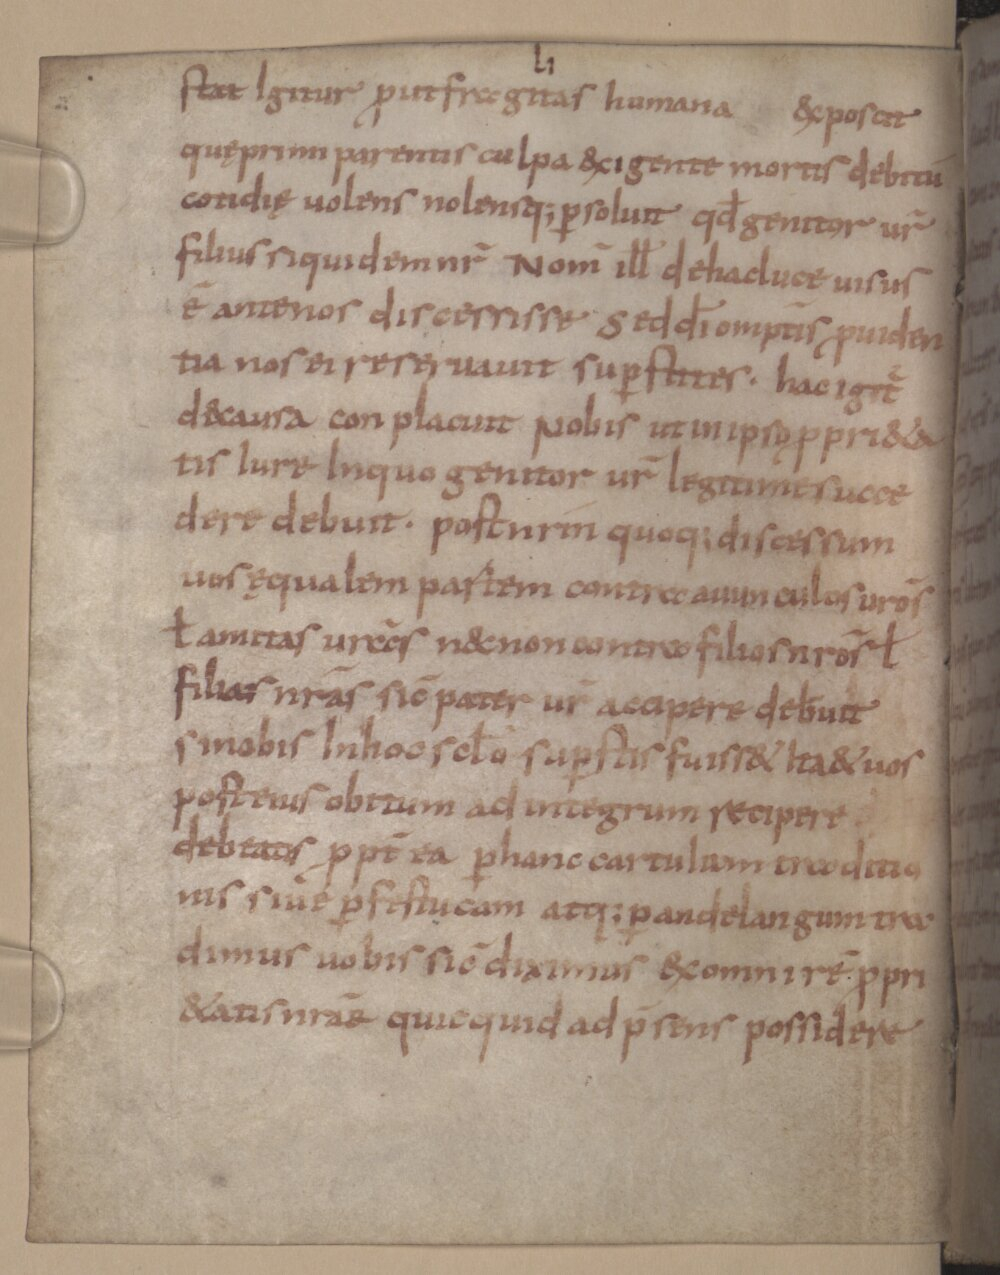 li
stat Igitur put fragitas humana & poscit
quę primi parentis culpa &xigente mortis debitū
cotidię uolens nolensq; ꝑsoluit qđ genitor ur̄
filius siquidem nr̄ Nom̄ ill̄ de hac luce uisus
ē ante nos discessisse Sed dī omp̄tis ꝓuiden
tia nos ei reseruauit suꝑstites. hac igit̄
de causa conplacuit Nobis ut in ipso ꝓpri&a
tis Iure In quo genitor ur̄ legitime succe
dere debuit. post nr̄m quoq; discessum
uos ęqualem partem contra auunculos ur̄os
ł amitas ur̄as n& non contra filios nr̄os ł
filias nr̄as sic̄ pater ur̄ accipere debuit
si nobis In hoc sc̄lo suꝑstis fuiss& Ita & uos
post eius obitum ad integrum recipere
debeatis ꝓpt̄ ea ꝑ hanc cartulam traditio
nis siue ꝑ festucam atq; ꝑ andelangum tra
dimus uobis sic̄ diximus & omni rē ꝓpri
&atis nr̄ae quicquid ad p̄sens possidere